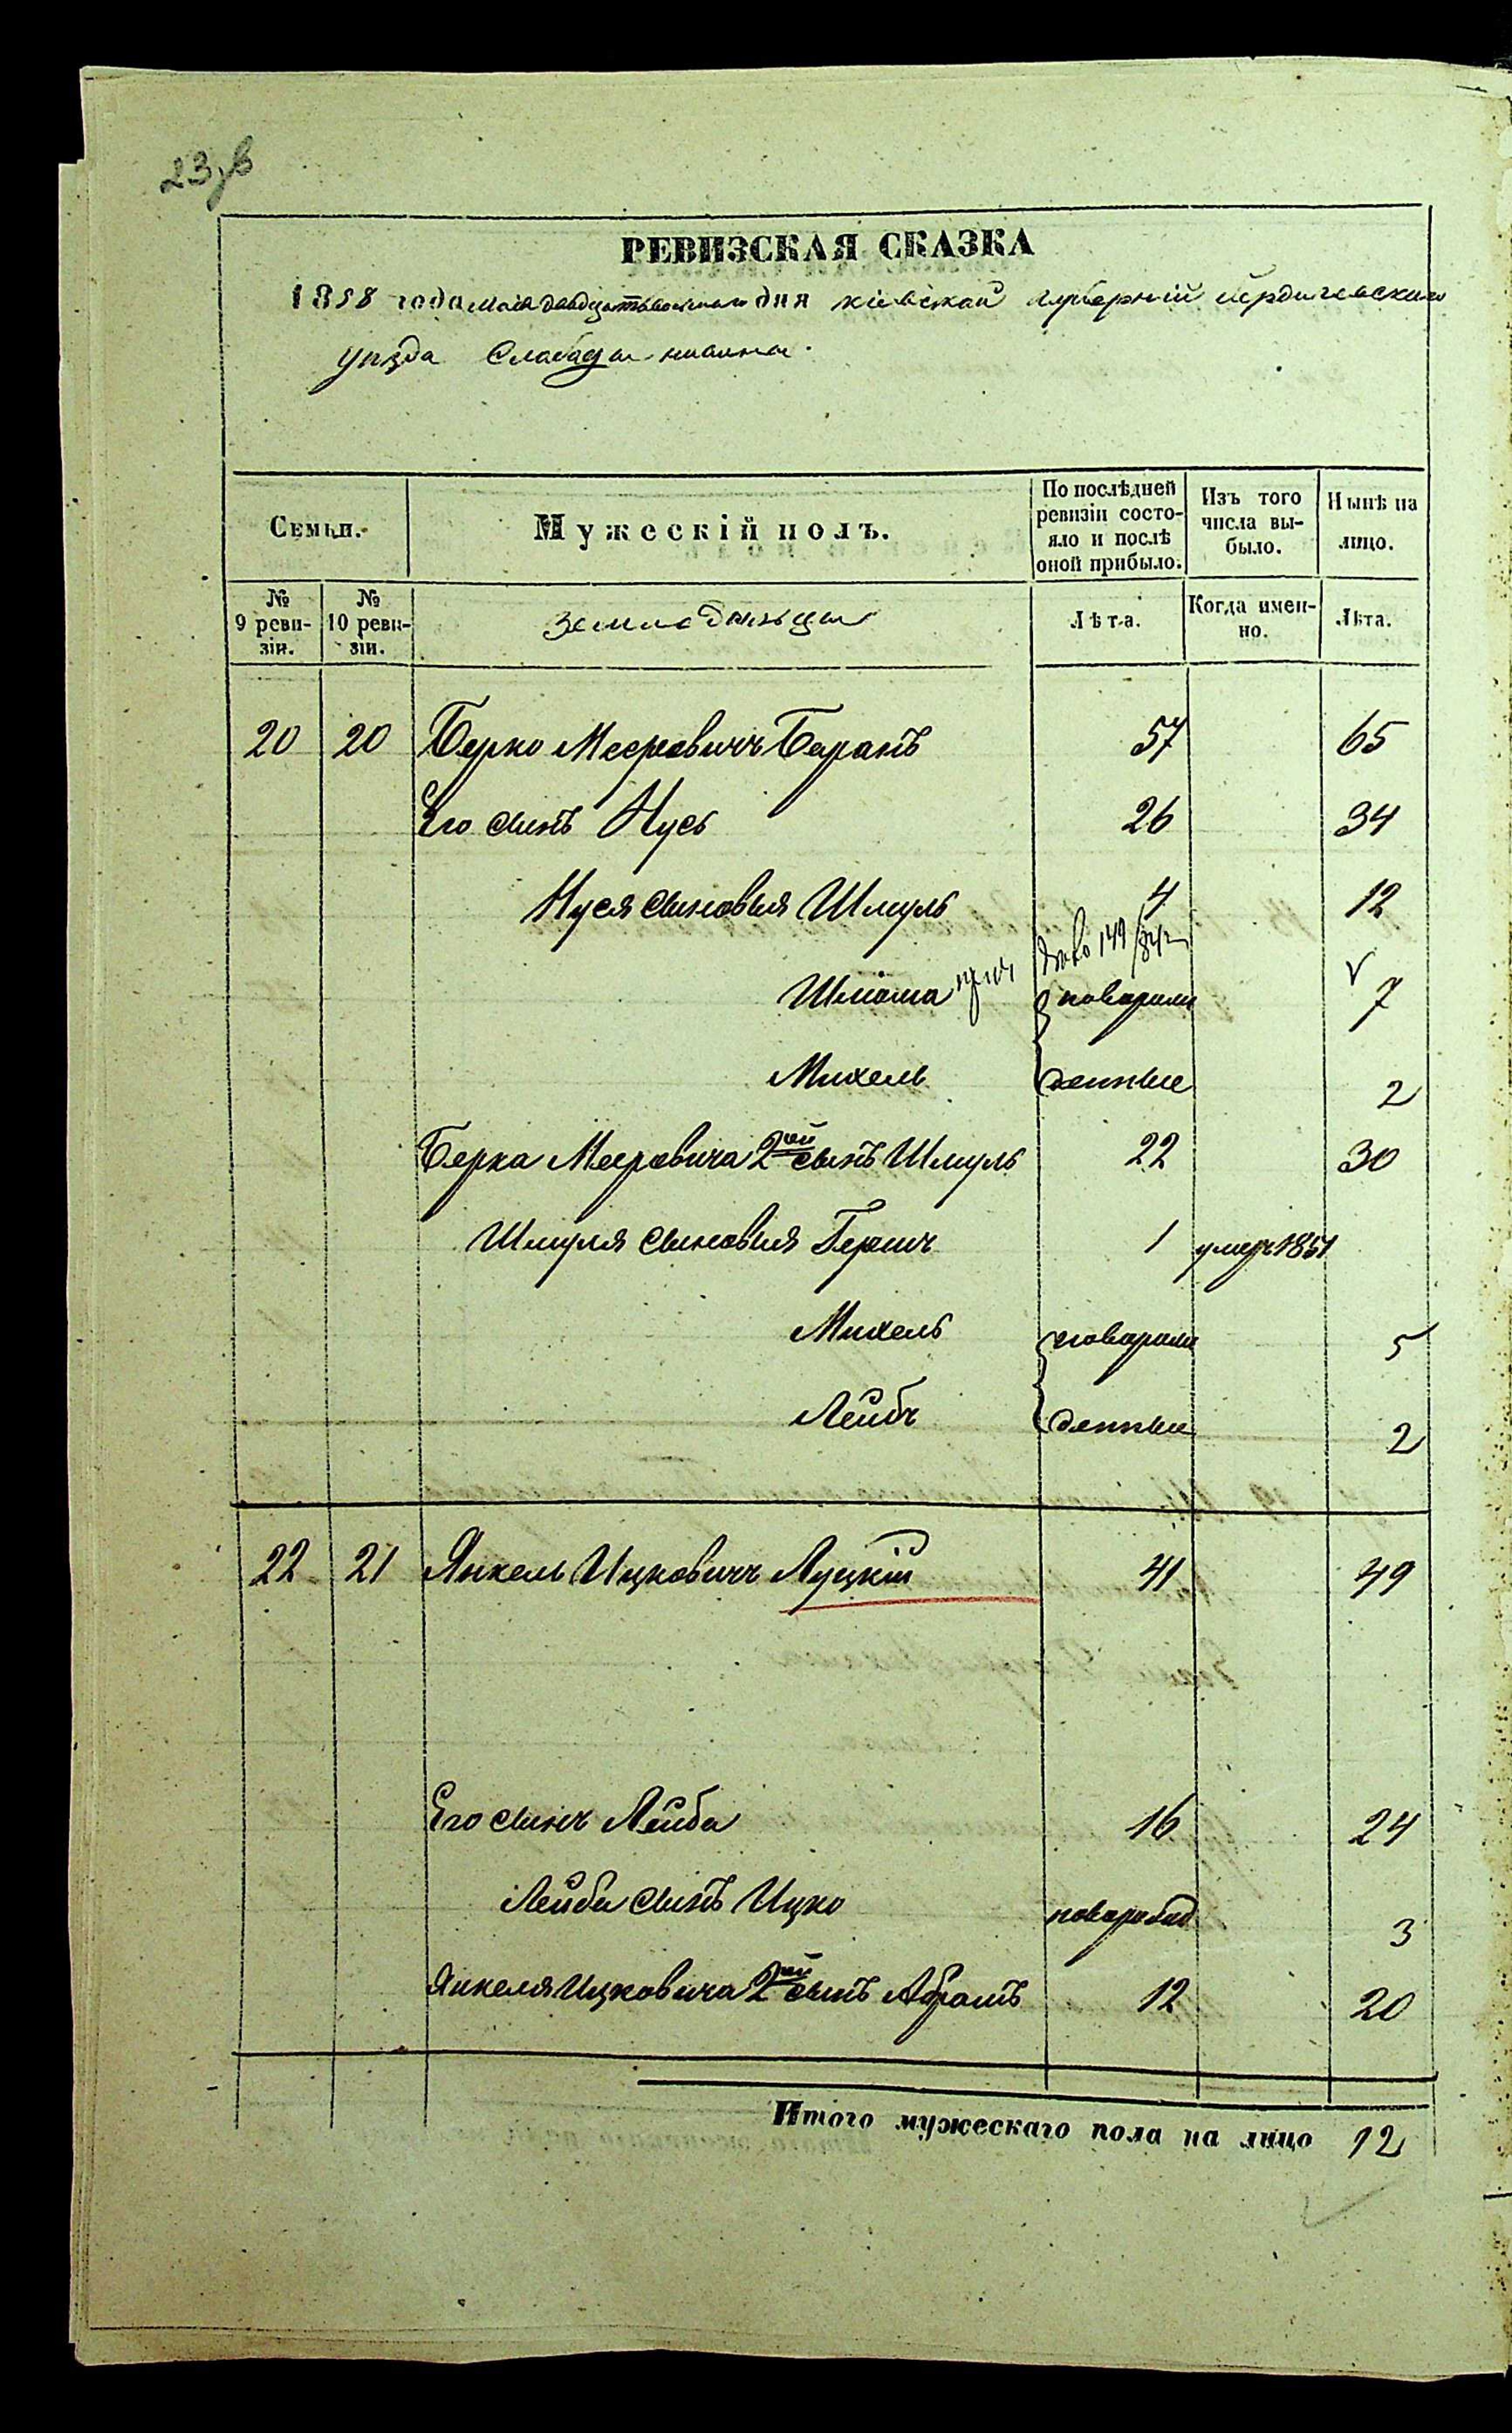 РЕВИЗСКАЯ СКАЗКА
1858 года мая дня кіевской губерніи бердичевскаго
уѣзда Слабоды
Семьи.
Мужескій полъ.
По послѣдней ревизіи состо-
яло и послѣ
оной прибыло.
Изъ того
числа вы-
было.
Нынѣ на
лицо.
№
9 реви-
зіи.
№
10 реви-
зіи.
земледельцы
Лѣта.
Когда имен-
но.
Лѣта.
20 20 Берко Мееровичъ Баранъ 57 65
Его сынъ Нусь 26 34
Нуся сыновья Шмуль 4 12
Шліома 7
новорож
Михель денные 2
Берка Мееровича 2ой сынъ Шмуль 22 30
Шмуля сыновья Гершъ 1 умеръ 1851
Михель новорож 5
Лейбъ денные 2
22 21 Янкель Ицковичъ Луцкій 41 49
Его сынъ Лейба 16 24
Лейбы сынъ Ицко 3
Янкеля Ицковича 2ой сынъ Абрамъ 12 20
Итого мужескаго пола на лицо 12